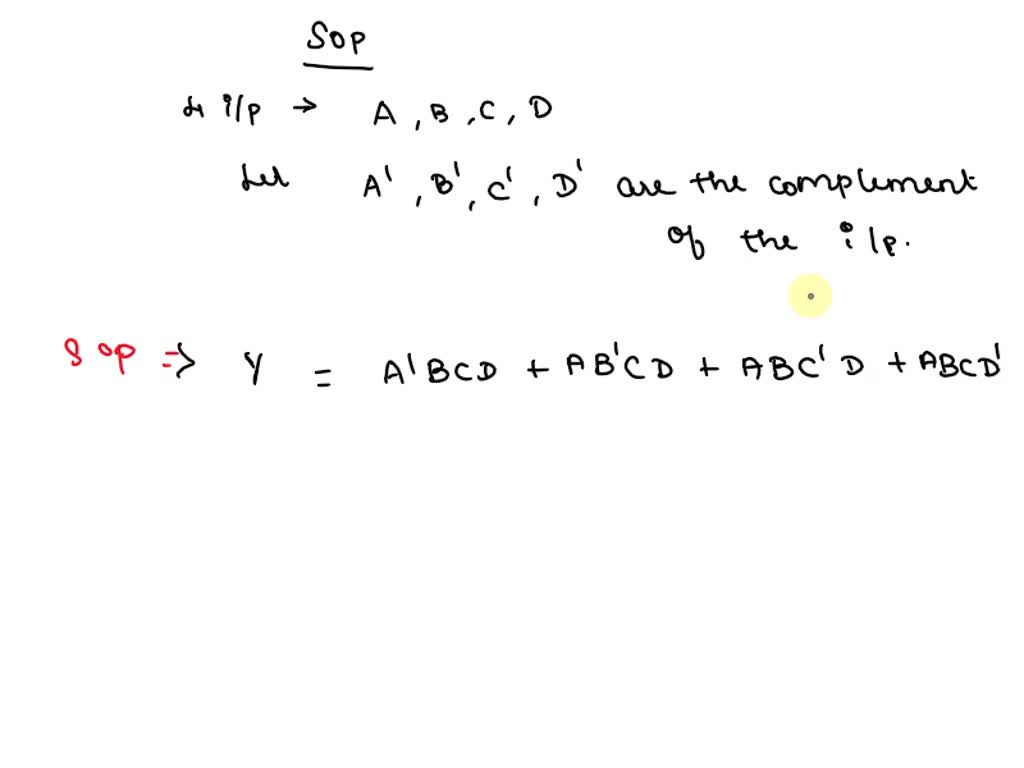 SOP
4 i/p → A, B, C, D
Let A', B', C', D' are the complement
of the i/p.
SOP ⇒ Y = A'BCD + AB'CD + ABC'D + ABCD'